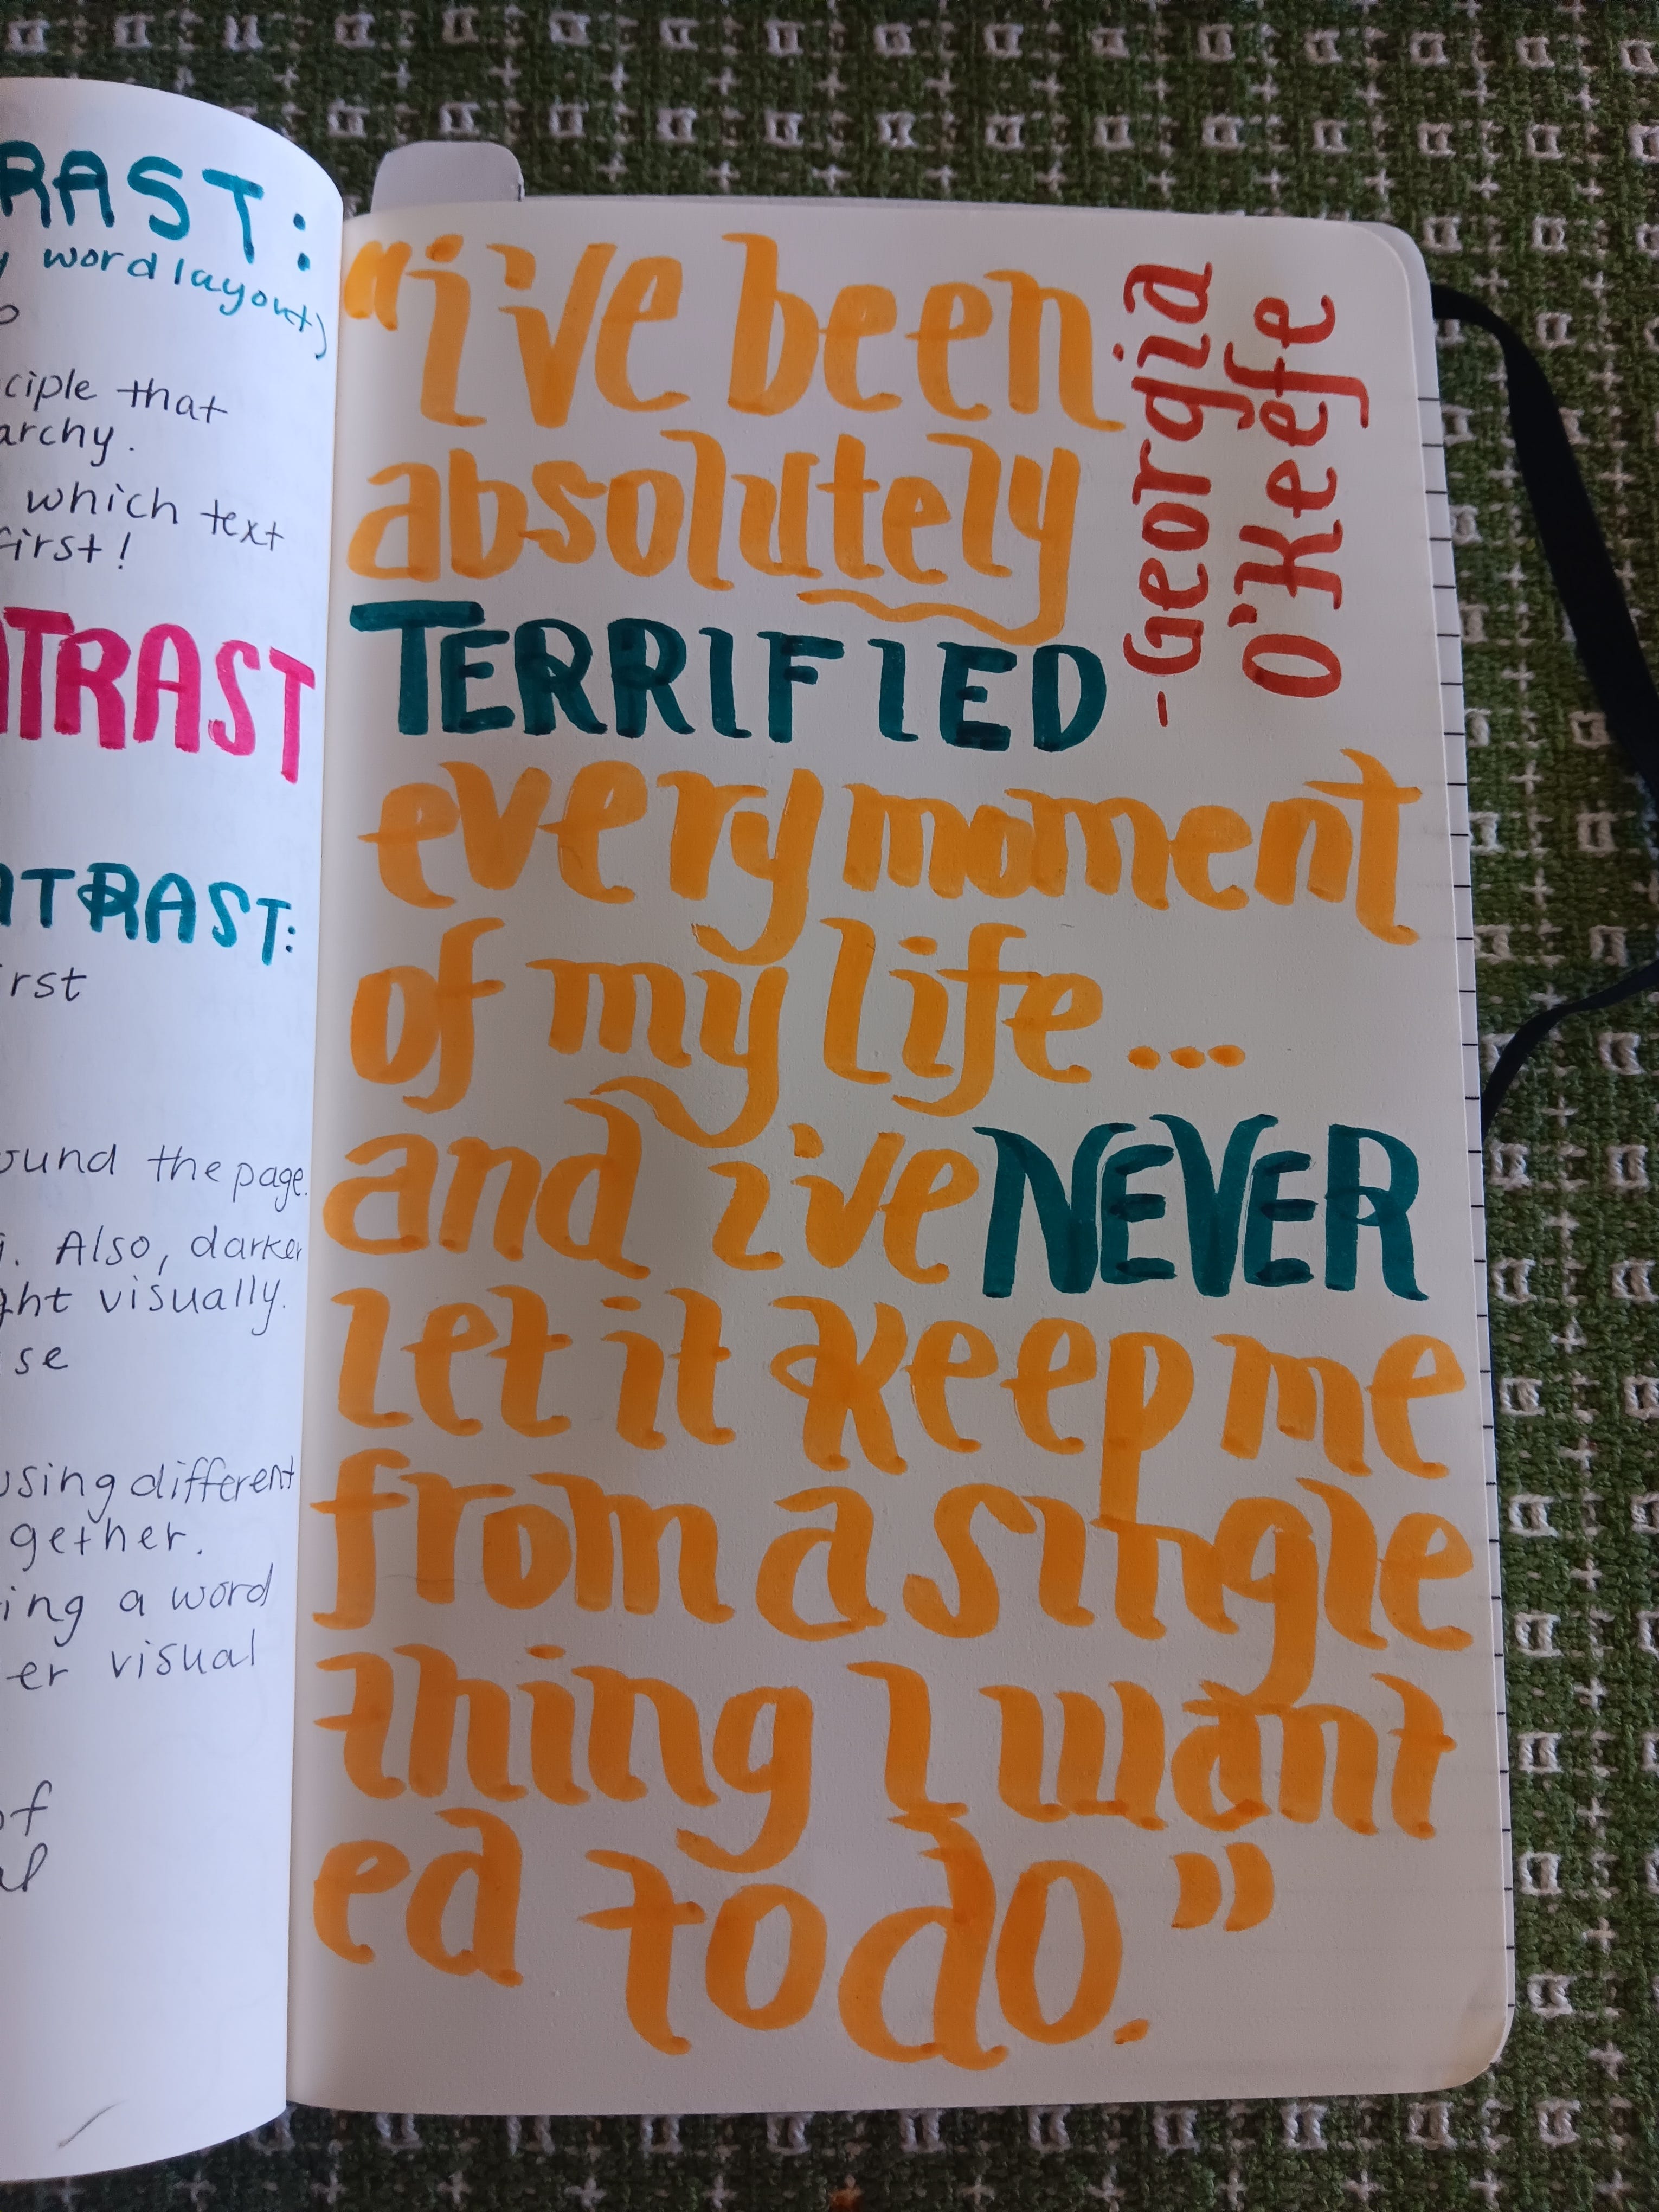 RAST:
word layout)
that
which text
first!
TRAST
TRAST:
the page.
. Also, darker
visually.
se
using different
gether.
ing a word
er visual
of
"i've been
absolutely
TERRIFIED
every moment
of my life...
and i've NEVER
let it keep me
from a single
thing I want
ed to do."
-Georgia
O'Keefe